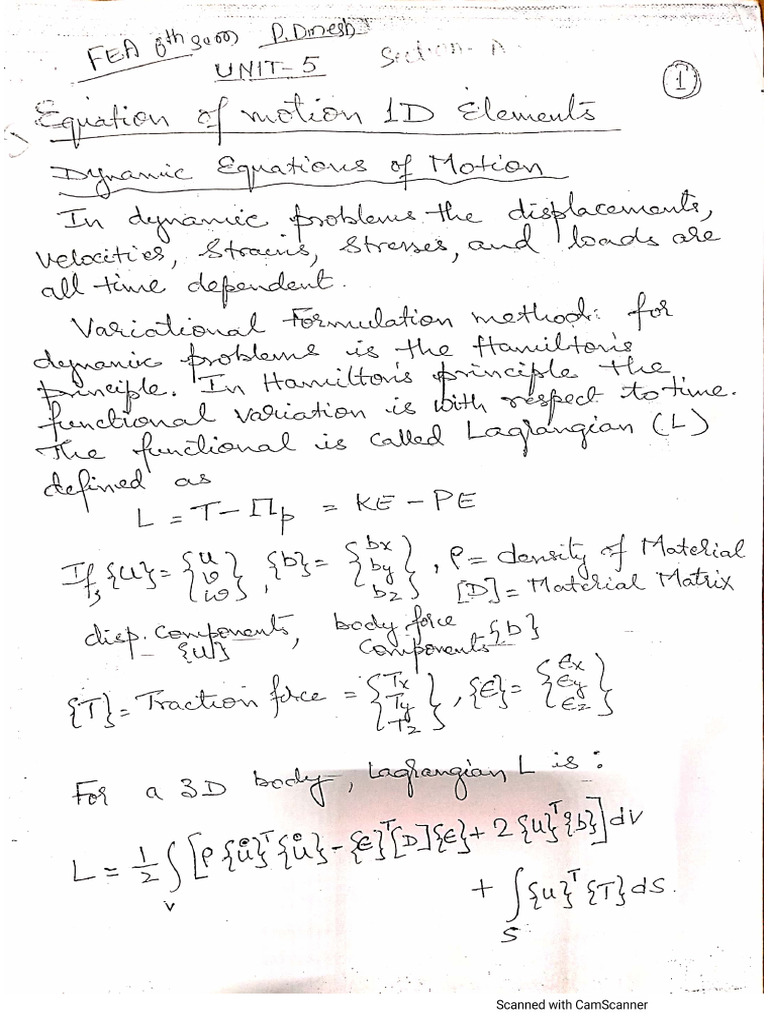 FEA 6th sem P. Dinesh
UNIT-5 Section-A
1
Equation of motion 1D Elements
Dynamic Equations of Motion
In dynamic problems the displacements,
velocities, strains, stresses, and loads are
all time dependent.
Variational Formulation method: for
dynamic problems is the Hamilton's
principle. In Hamilton's principle the
functional variation is with respect to time.
The functional is called Lagrangian (L)
defined as
L = T - Πp = KE - PE
If, {u} = {u v w}, {b} = {bx by bz}, ρ = density of Material
[D] = Material Matrix
disp. components, body force
{u} components {b}
{T} = Traction force = {Tx Ty Tz}, {ϵ} = {ϵx ϵy ϵz}
For a 3D body, Lagrangian L is :
L = 1/2 ∫v [ρ {u̇}ᵀ{u̇} - {ϵ}ᵀ[D]{ϵ} + 2{u}ᵀ{b}] dv
+ ∫S {u}ᵀ{T} ds.
Scanned with CamScanner